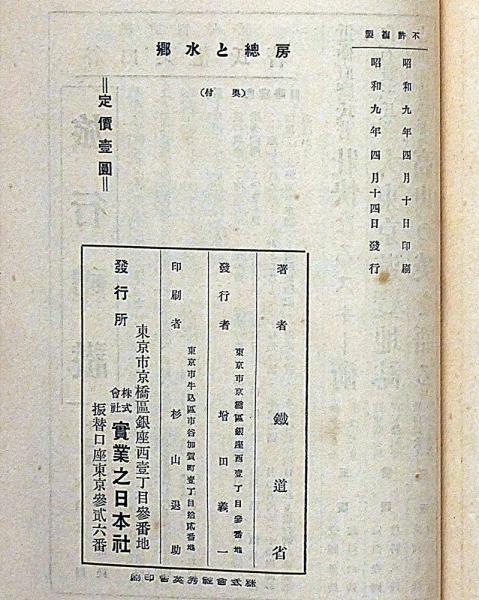 不許複製
昭和九年四月十日印刷
昭和九年四月十四日發行
房總と水郷
(奥付)
定價壹圓
著者 鐵道省
東京市京橋區銀座西壹丁目參番地
發行者 增田義一
東京市牛込區市谷加賀町壹丁目拾貳番地
印刷者 杉山退助
發行所
東京市京橋區銀座西壹丁目參番地
株式會社 實業之日本社
振替口座東京參貳六番
株式會社秀英舍印刷